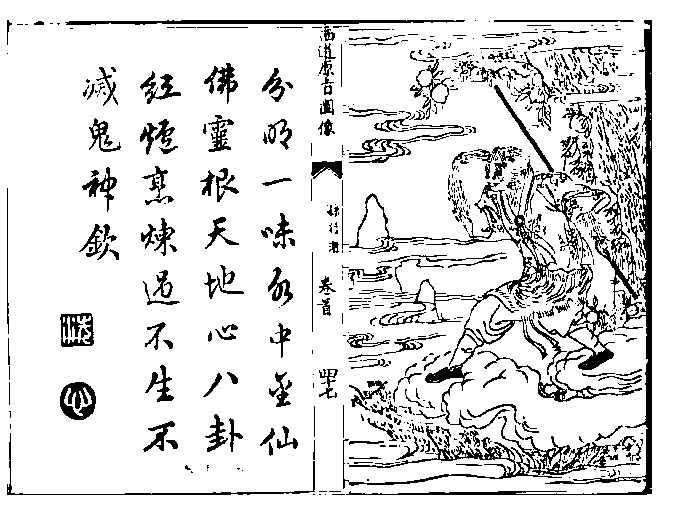 西遊原旨圖像 孫行者 卷首 四七
分明一味水中金仙
佛靈根天地心八卦
紅爐烹煉過不生不
滅鬼神欽